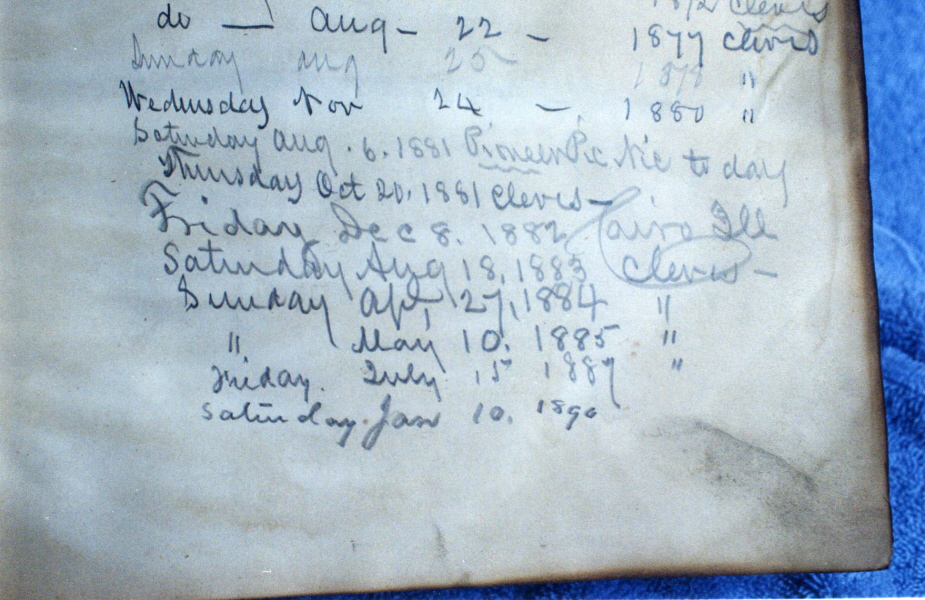 1872 clevis
do — aug — 22 — 1877 clevis
Sunday aug 25 1878 "
Wednesday Nov 24 — 1880 "
Saturday aug. 6. 1881 Pioneer Pic Nic to day
Thursday Oct 20, 1881 clevis —
Friday Dec 8. 1882 Cairo Ill
Saturday Aug 18, 1883 clevis —
Sunday apl, 27, 1884 "
" May 10. 1885 "
Friday. July 15 1887 "
Saturday. Jan 10. 1890